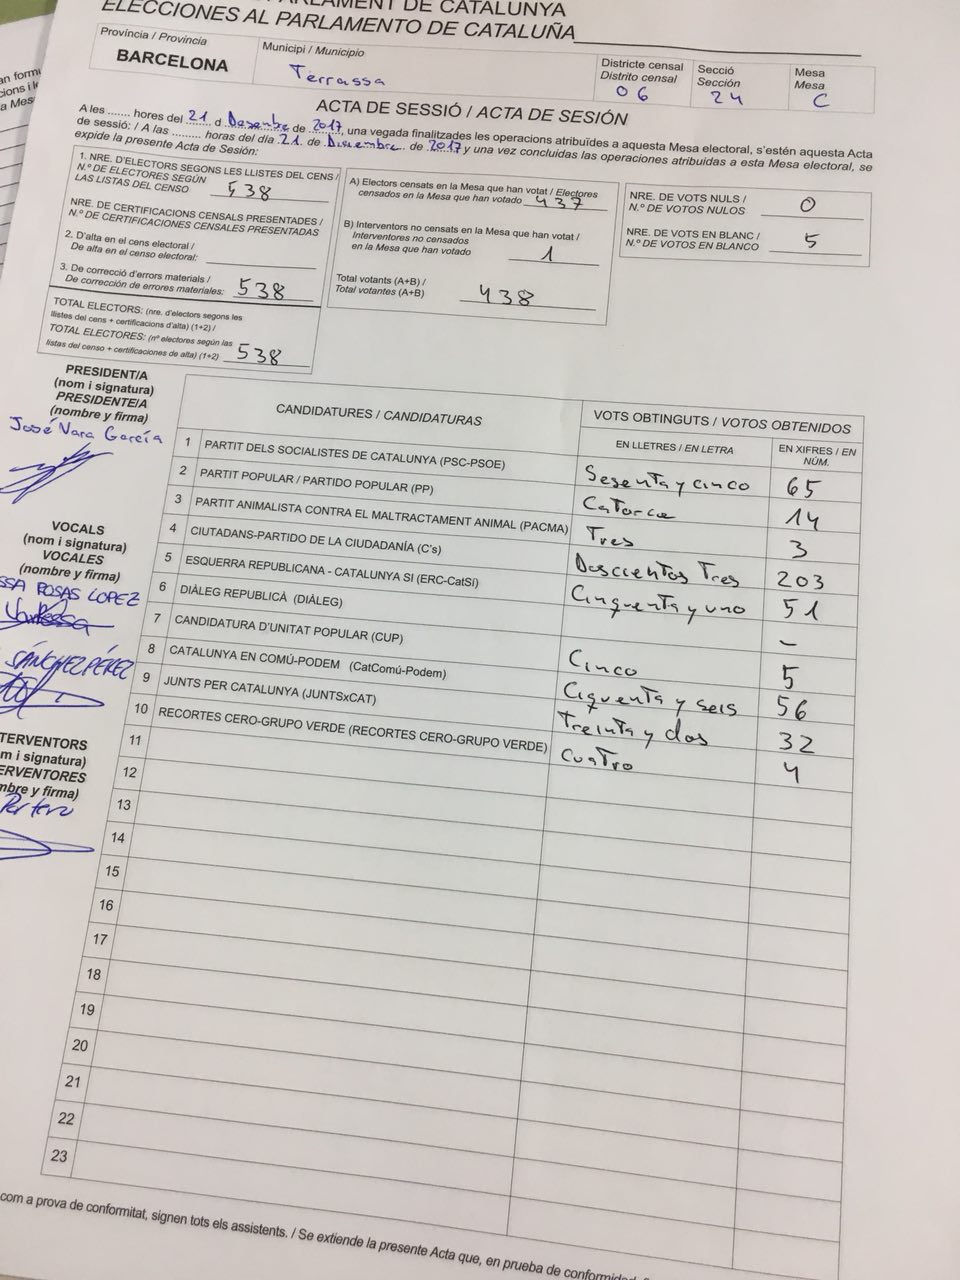 PARLAMENT DE CATALUNYA
ELECCIONES AL PARLAMENTO DE CATALUÑA
Província / Provincia
BARCELONA
Municipi / Municipio
Terrassa
Districte censal
Distrito censal
06
Secció
Sección
24
Mesa
Mesa
C
ACTA DE SESSIÓ / ACTA DE SESIÓN
A les ....... hores del 21 d Desembre de 2017, una vegada finalitzades les operacions atribuïdes a aquesta Mesa electoral, s'estén aquesta Acta
de sessió: / A las ......... horas del día 21 de Diciembre de 2017 y una vez concluidas las operaciones atribuidas a esta Mesa electoral, se
expide la presente Acta de Sesión:
1. NRE. D'ELECTORS SEGONS LES LLISTES DEL CENS /
N.º DE ELECTORES SEGÚN
LAS LISTAS DEL CENSO 538
NRE. DE CERTIFICACIONS CENSALS PRESENTADES /
N.º DE CERTIFICACIONES CENSALES PRESENTADAS
2. D'alta en el cens electoral /
De alta en el censo electoral:
3. De correcció d'errors materials /
De corrección de errores materiales: 538
TOTAL ELECTORS: (nre. d'electors segons les
llistes del cens + certificacions d'alta) (1+2) /
TOTAL ELECTORES: (nº electores según las
listas del censo + certificaciones de alta) (1+2) 538
A) Electors censats en la Mesa que han votat / Electores
censados en la Mesa que han votado 437
B) Interventors no censats en la Mesa que han votat /
Interventores no censados
en la Mesa que han votado 1
Total votants (A+B) /
Total votantes (A+B) 438
NRE. DE VOTS NULS /
N.º DE VOTOS NULOS 0
NRE. DE VOTS EN BLANC /
N.º DE VOTOS EN BLANCO 5
PRESIDENT/A
(nom i signatura)
PRESIDENTE/A
(nombre y firma)
José Vara García
VOCALS
(nom i signatura)
VOCALES
(nombre y firma)
SSA ROSAS LOPEZ
Vanessa
SÁNCHEZ PÉREZ
TERVENTORS
m i signatura)
ERVENTORES
mbre y firma)
CANDIDATURES / CANDIDATURAS
VOTS OBTINGUTS / VOTOS OBTENIDOS
EN LLETRES / EN LETRA
EN XIFRES / EN
NÚM.
1 PARTIT DELS SOCIALISTES DE CATALUNYA (PSC-PSOE) Sesenta y cinco 65
2 PARTIT POPULAR / PARTIDO POPULAR (PP) Catorce 14
3 PARTIT ANIMALISTA CONTRA EL MALTRACTAMENT ANIMAL (PACMA) Tres 3
4 CIUTADANS-PARTIDO DE LA CIUDADANÍA (C's) Doscientos Tres 203
5 ESQUERRA REPUBLICANA - CATALUNYA SI (ERC-CatSí) Cinquenta y uno 51
6 DIÀLEG REPUBLICÀ (DIÀLEG) –
7 CANDIDATURA D'UNITAT POPULAR (CUP) Cinco 5
8 CATALUNYA EN COMÚ-PODEM (CatComú-Podem) Ciquenta y seis 56
9 JUNTS PER CATALUNYA (JUNTSxCAT) Treinta y dos 32
10 RECORTES CERO-GRUPO VERDE (RECORTES CERO-GRUPO VERDE) Cuatro 4
11
12
13
14
15
16
17
18
19
20
21
22
23
com a prova de conformitat, signen tots els assistents. / Se extiende la presente Acta que, en prueba de conformidad,